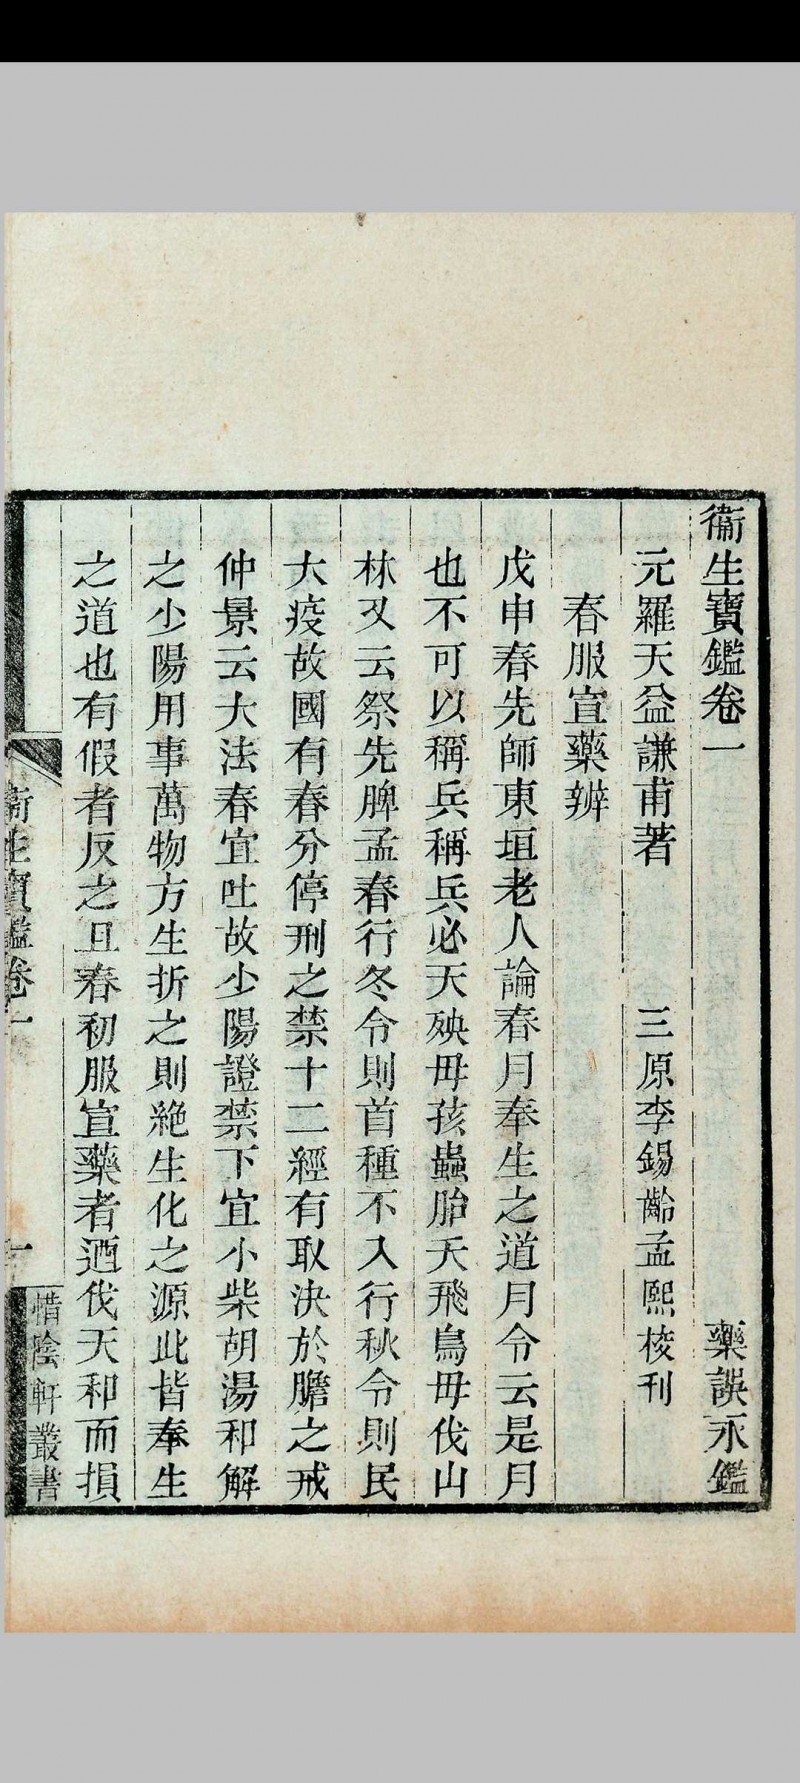 衞生寶鑑卷一　藥誤永鑑
元羅天益謙甫著　三原李錫齡孟熙校刊
春服宣藥辨
戊申春先師東垣老人論春月奉生之道月令云是月
也不可以稱兵稱兵必天殃毋孩蟲胎夭飛鳥毋伐山
林又云祭先脾孟春行冬令則首種不入行秋令則民
大疫故國有春分停刑之禁十二經有取決於膽之戒
仲景云大法春宜吐故少陽證禁下宜小柴胡湯和解
之少陽用事萬物方生折之則絶生化之源此皆奉生
之道也有假者反之且春初服宣藥者迺伐天和而損
衞生寶鑑卷一
一
惜陰軒叢書